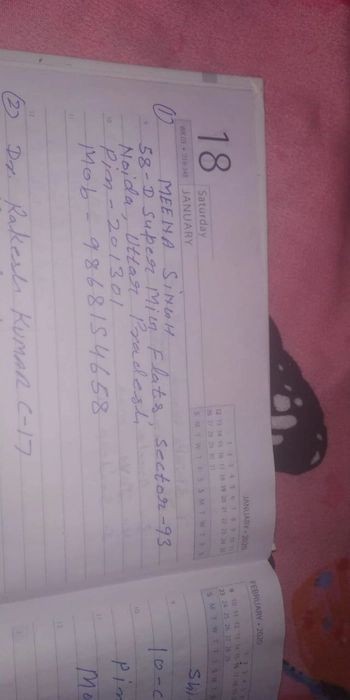 18
Saturday
JANUARY
JANUARY • 2020
(1) MEENA SINGH
58-D Super MIG Flats, Sector-93
Noida, Uttar Pradesh
Pin - 201301
Mob - 9868154658
(2) Dr Rakesh Kumar C-17
FEBRUARY • 2020
10-C
Pin
Mo